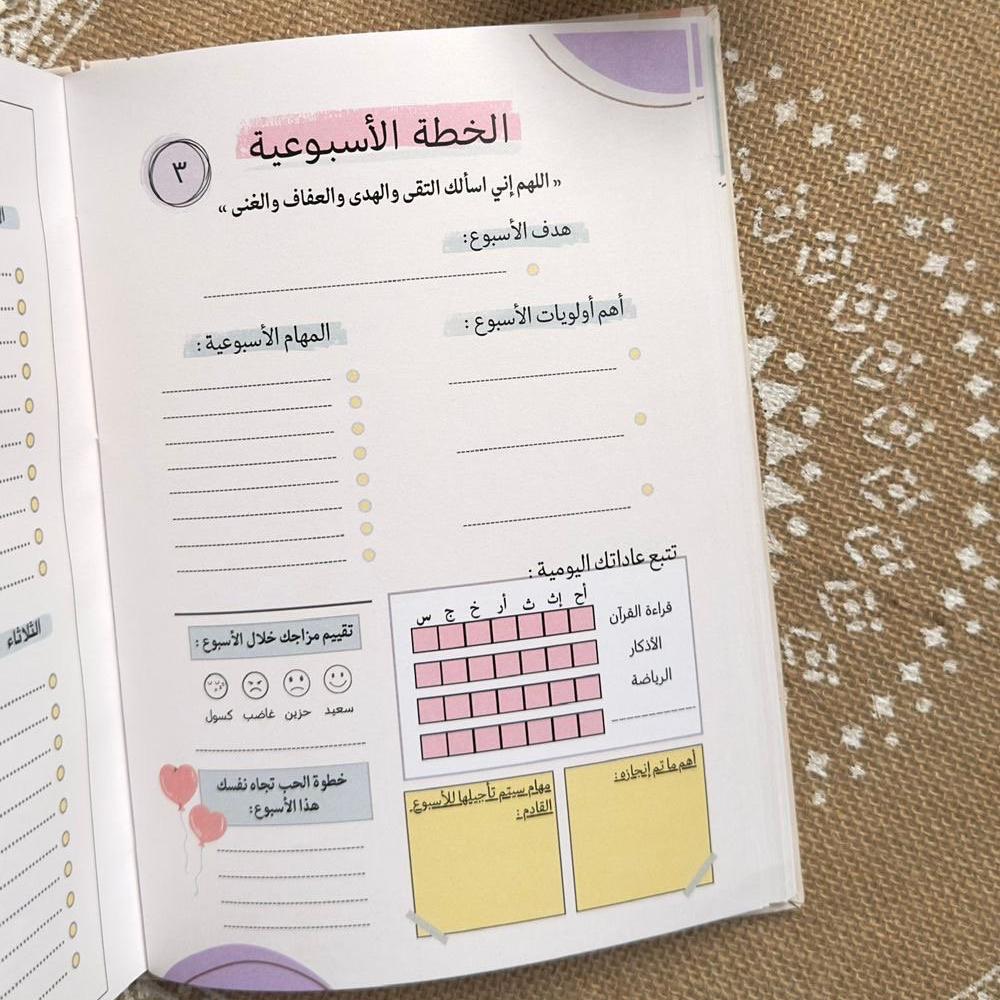 الخطة الأسبوعية
٣
« اللهم إني اسألك التقى والهدى والعفاف والغنى »
هدف الأسبوع:
أهم أولويات الأسبوع :
المهام الأسبوعية :
تتبع عاداتك اليومية :
أح إث ث أر خ ج س
قراءة القرآن
الأذكار
الرياضة
تقييم مزاجك خلال الأسبوع :
سعيد حزين غاضب كسول
خطوة الحب تجاه نفسك
هذا الأسبوع:
أهم ما تم إنجازه:
مهام سيتم تأجيلها للأسبوع
القادم :
الثلاثاء